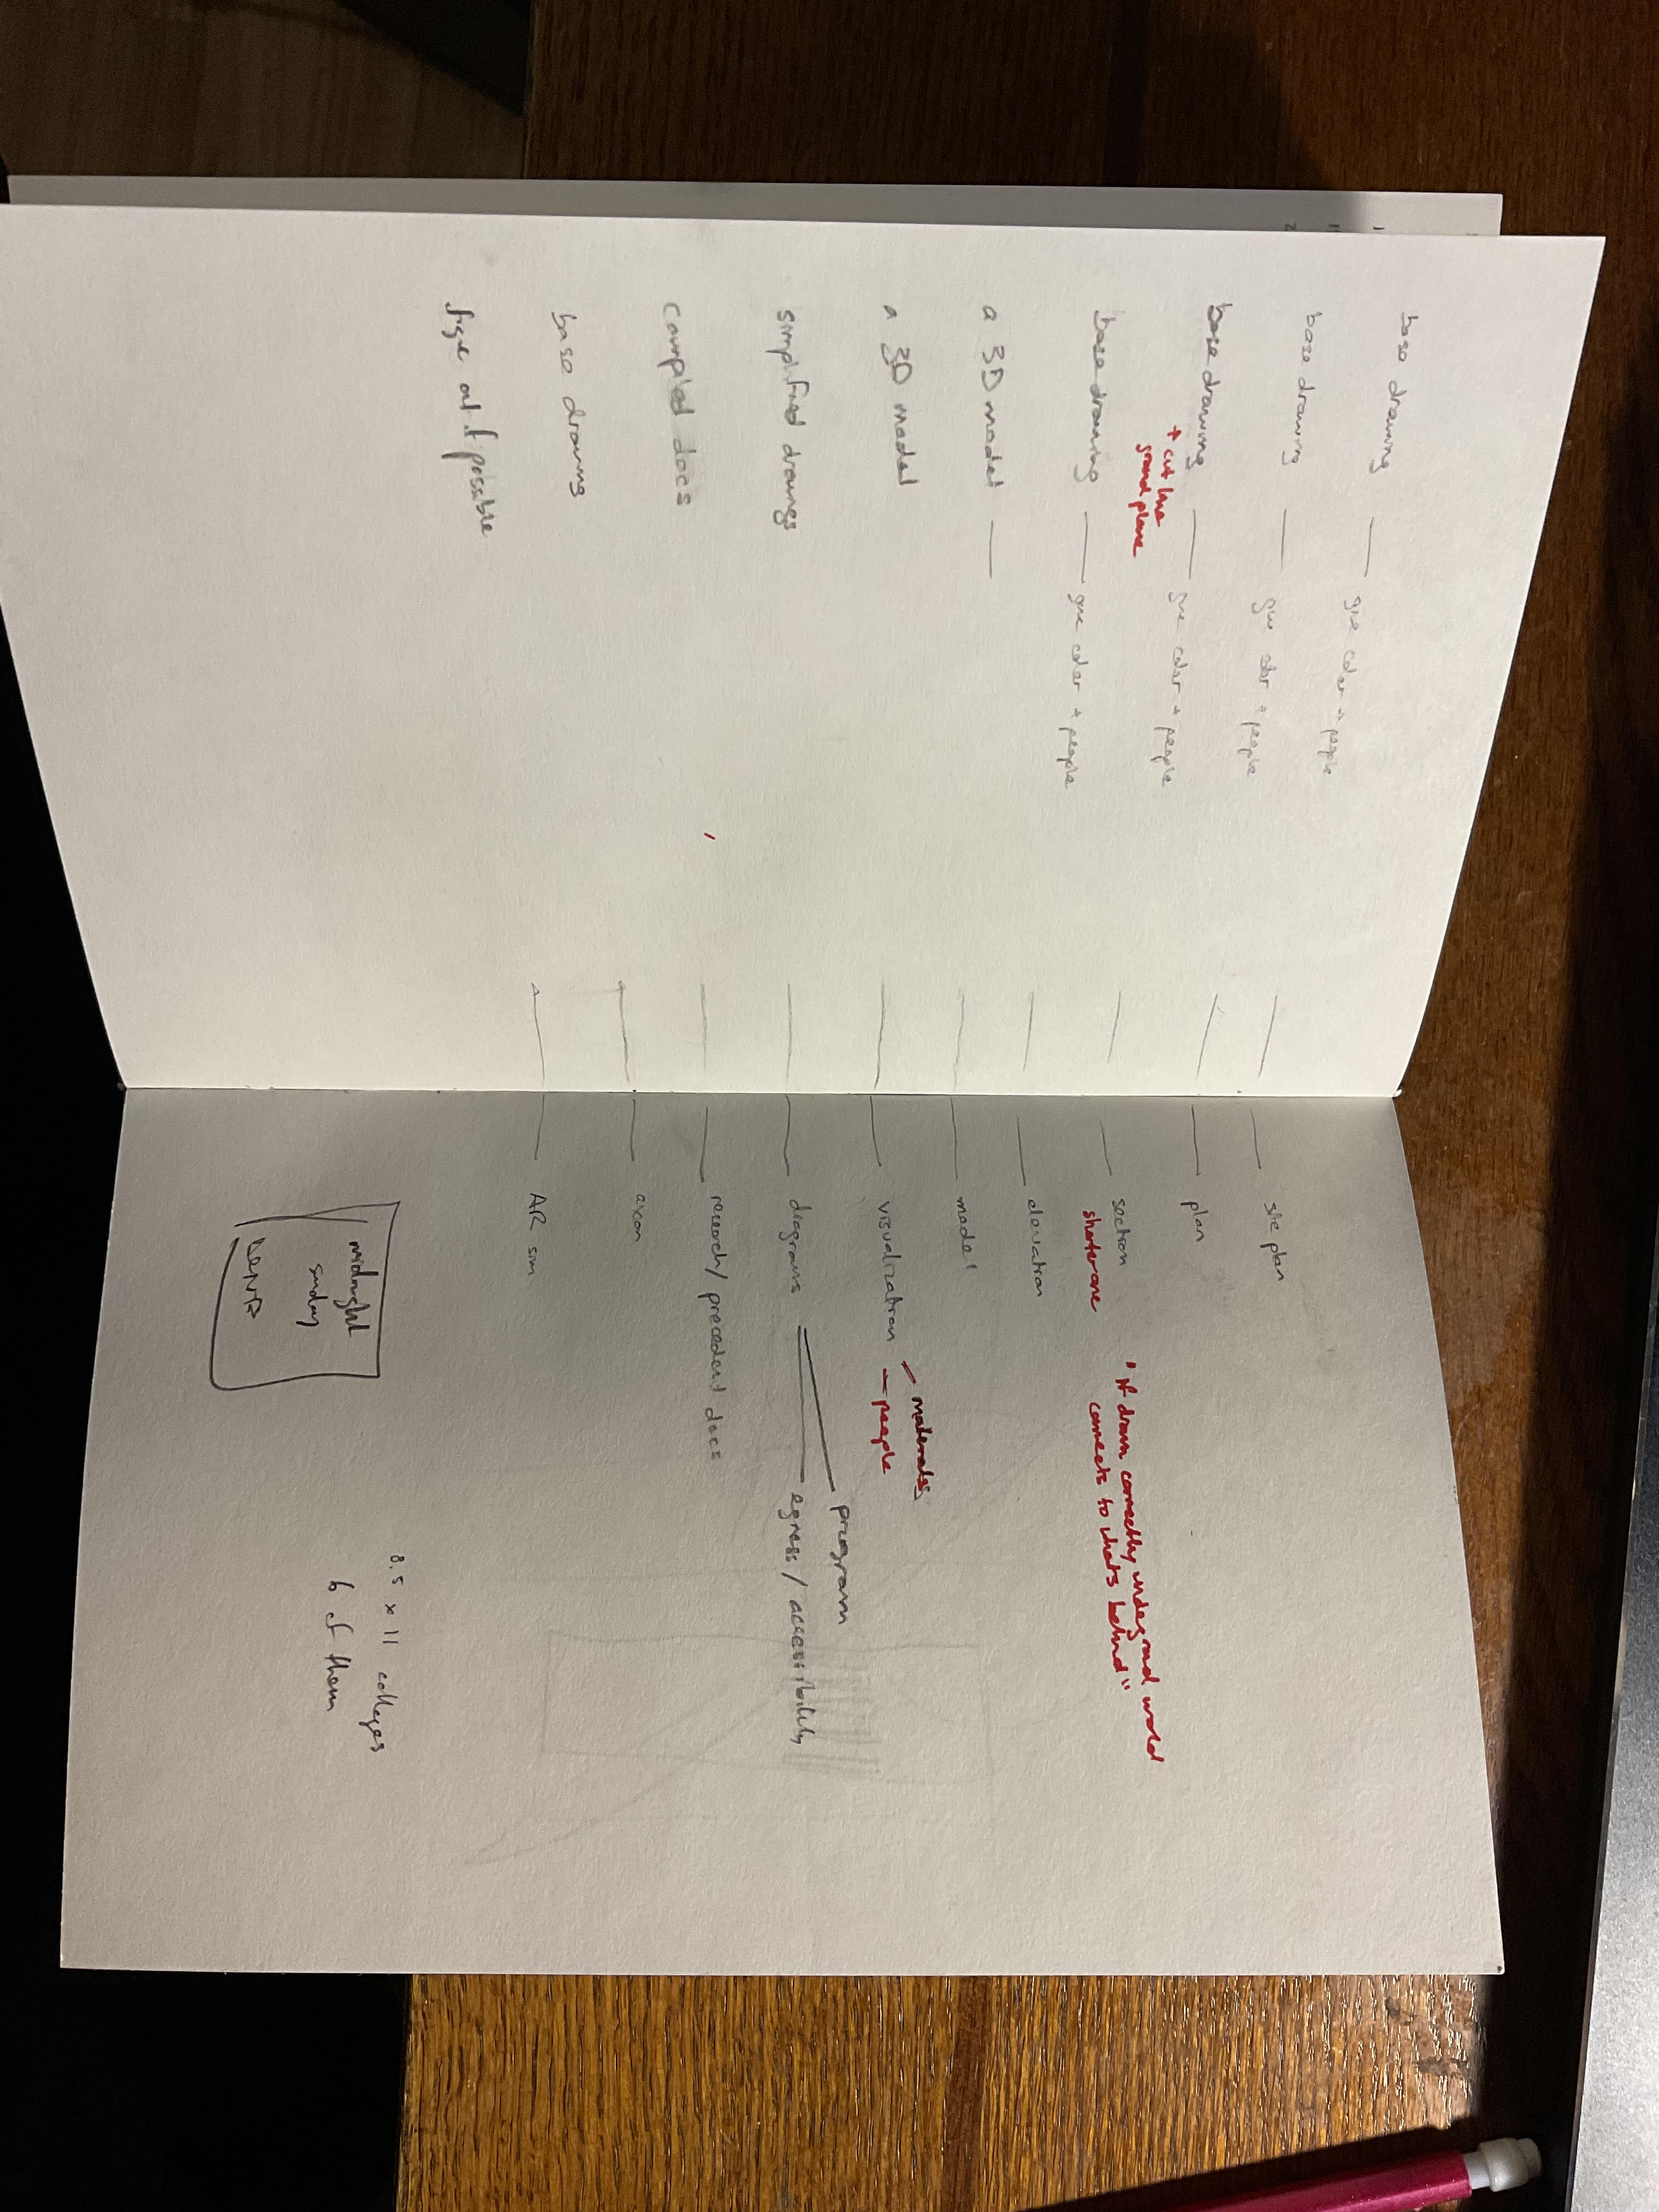 base drawing — give color + people
base drawing — give color + people
base drawing — give color + people
+ cut line
ground plane
base drawing — give color + people
a 3D model —
a 3D model
simplified drawings
compiled docs
base drawing
figure out if possible
site plan
plan
section
shorter one
"if drawn correctly underground would
connects to what's behind"
elevation
model
visualization
— materials
— people
diagrams
program
egress / accessibility
research / precedent docs
axon
AR sim
midnight
sunday
8.5 x 11 collages
6 of them